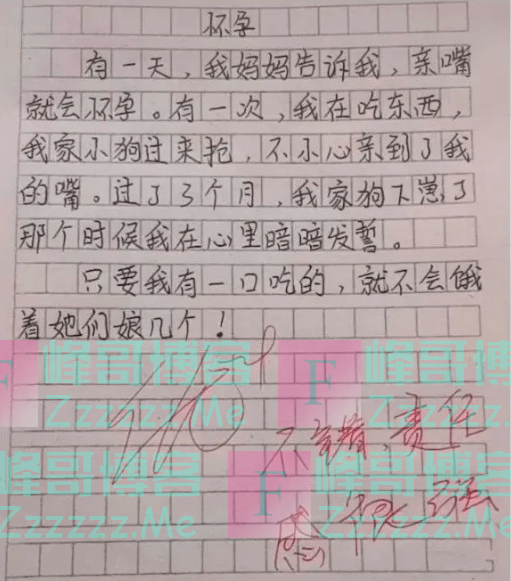 怀孕
有一天，我妈妈告诉我，亲嘴
就会怀孕。有一次，我在吃东西，
我家小狗过来抢，不小心亲到了我
的嘴。过了3个月，我家狗下崽了
那个时候我在心里暗暗发誓。
只要我有一口吃的，就不会饿
着她们娘几个！
峰哥博客
Zzzzzz.Me
F
峰哥博客
Zzzzzz.Me
不错，责任
感很强
峰哥博客
Zzzzzz.Me
F
峰哥博客
Zzzzzz.Me